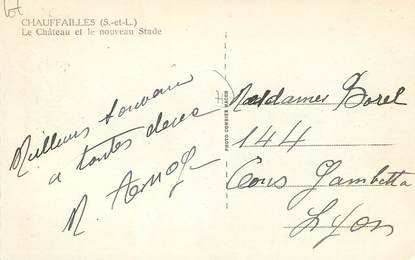 CHAUFFAILLES (S.-et-L.)
Le Château et le nouveau Stade
Meilleurs souvenirs
a toutes deux
M
PHOTO COMBIER MACON
Mesdames Borel
144
Cours Gambetta
Lyon